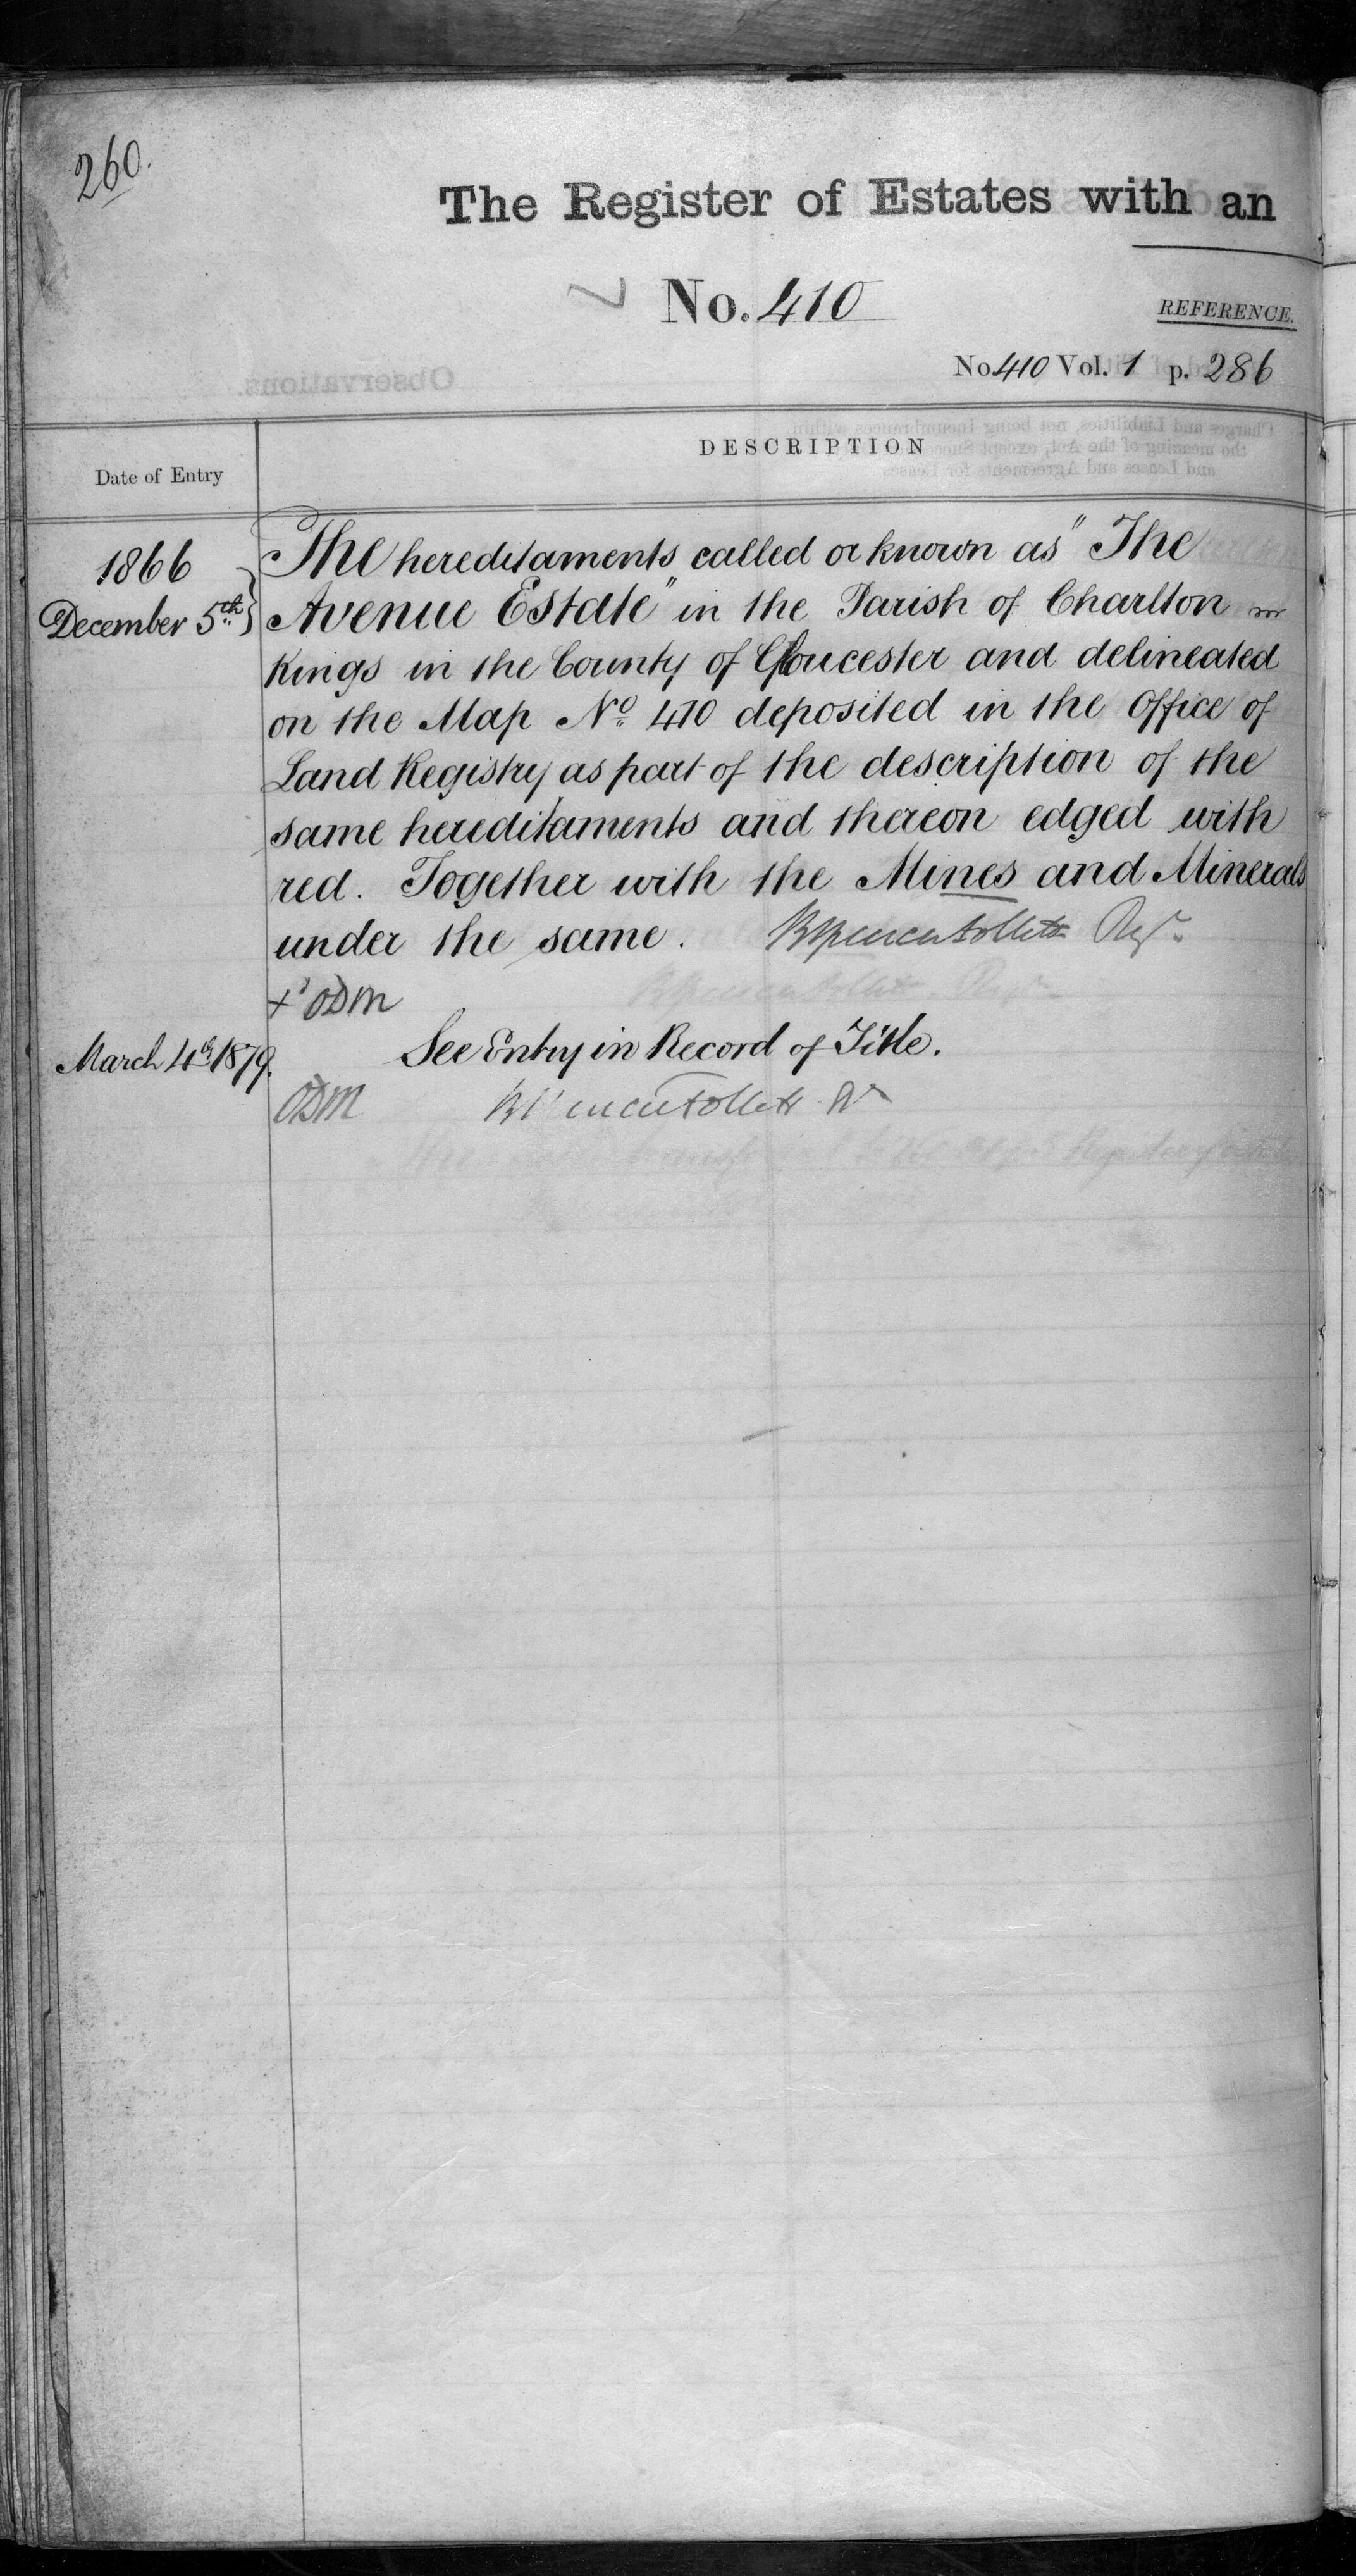 260.
The Register of Estates with an
No. 410
REFERENCE.
No 410 Vol. 1 p. 286
Observations.
DESCRIPTION
Date of Entry
1866
December 5th
The hereditaments called or known as "The
Avenue Estate" in the Parish of Charlton
Kings in the County of Gloucester and delineated
on the Map No. 410 deposited in the Office of
Land Registry as part of the description of the
same hereditaments and thereon edged with
red. Together with the Mines and Minerals
under the same. Regr.
ODM
March 4th 1879. See Entry in Record of Title.
ODM